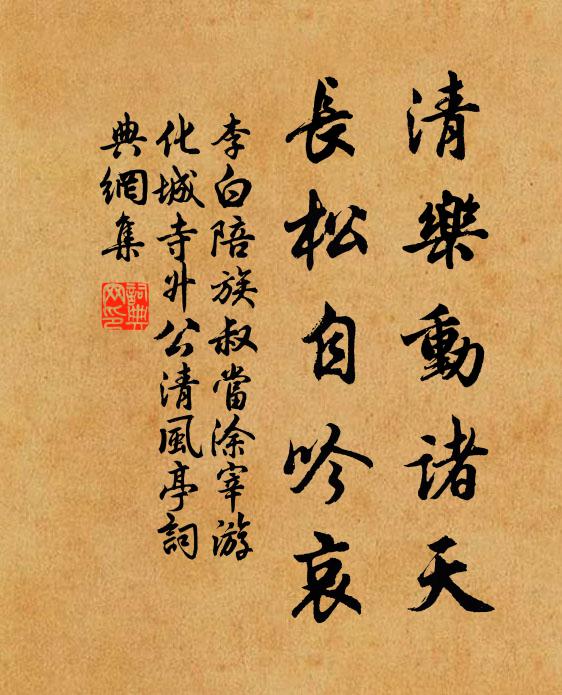 清樂動诸天
長松自吟哀
李白陪族叔當涂宰游
化城寺升公清風亭詞
典網集
詞典
网印